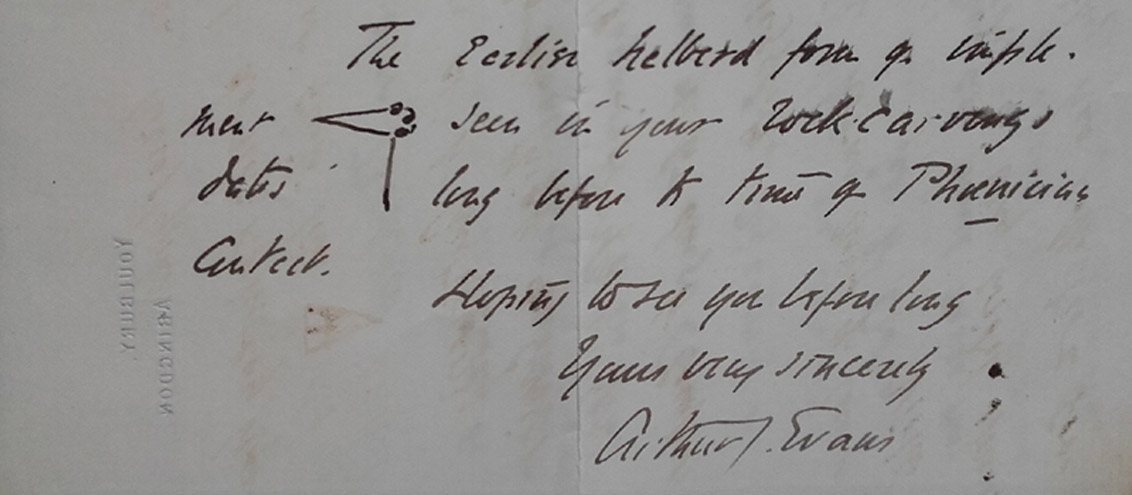 The Earlier halberd form of imple-
ment seen in your Rock Carvings
dates long before the time of Phœnician
Contact.
Hoping to see you before long
Yours very sincerely
Arthur J. Evans
YOULBURY,
ABINGDON